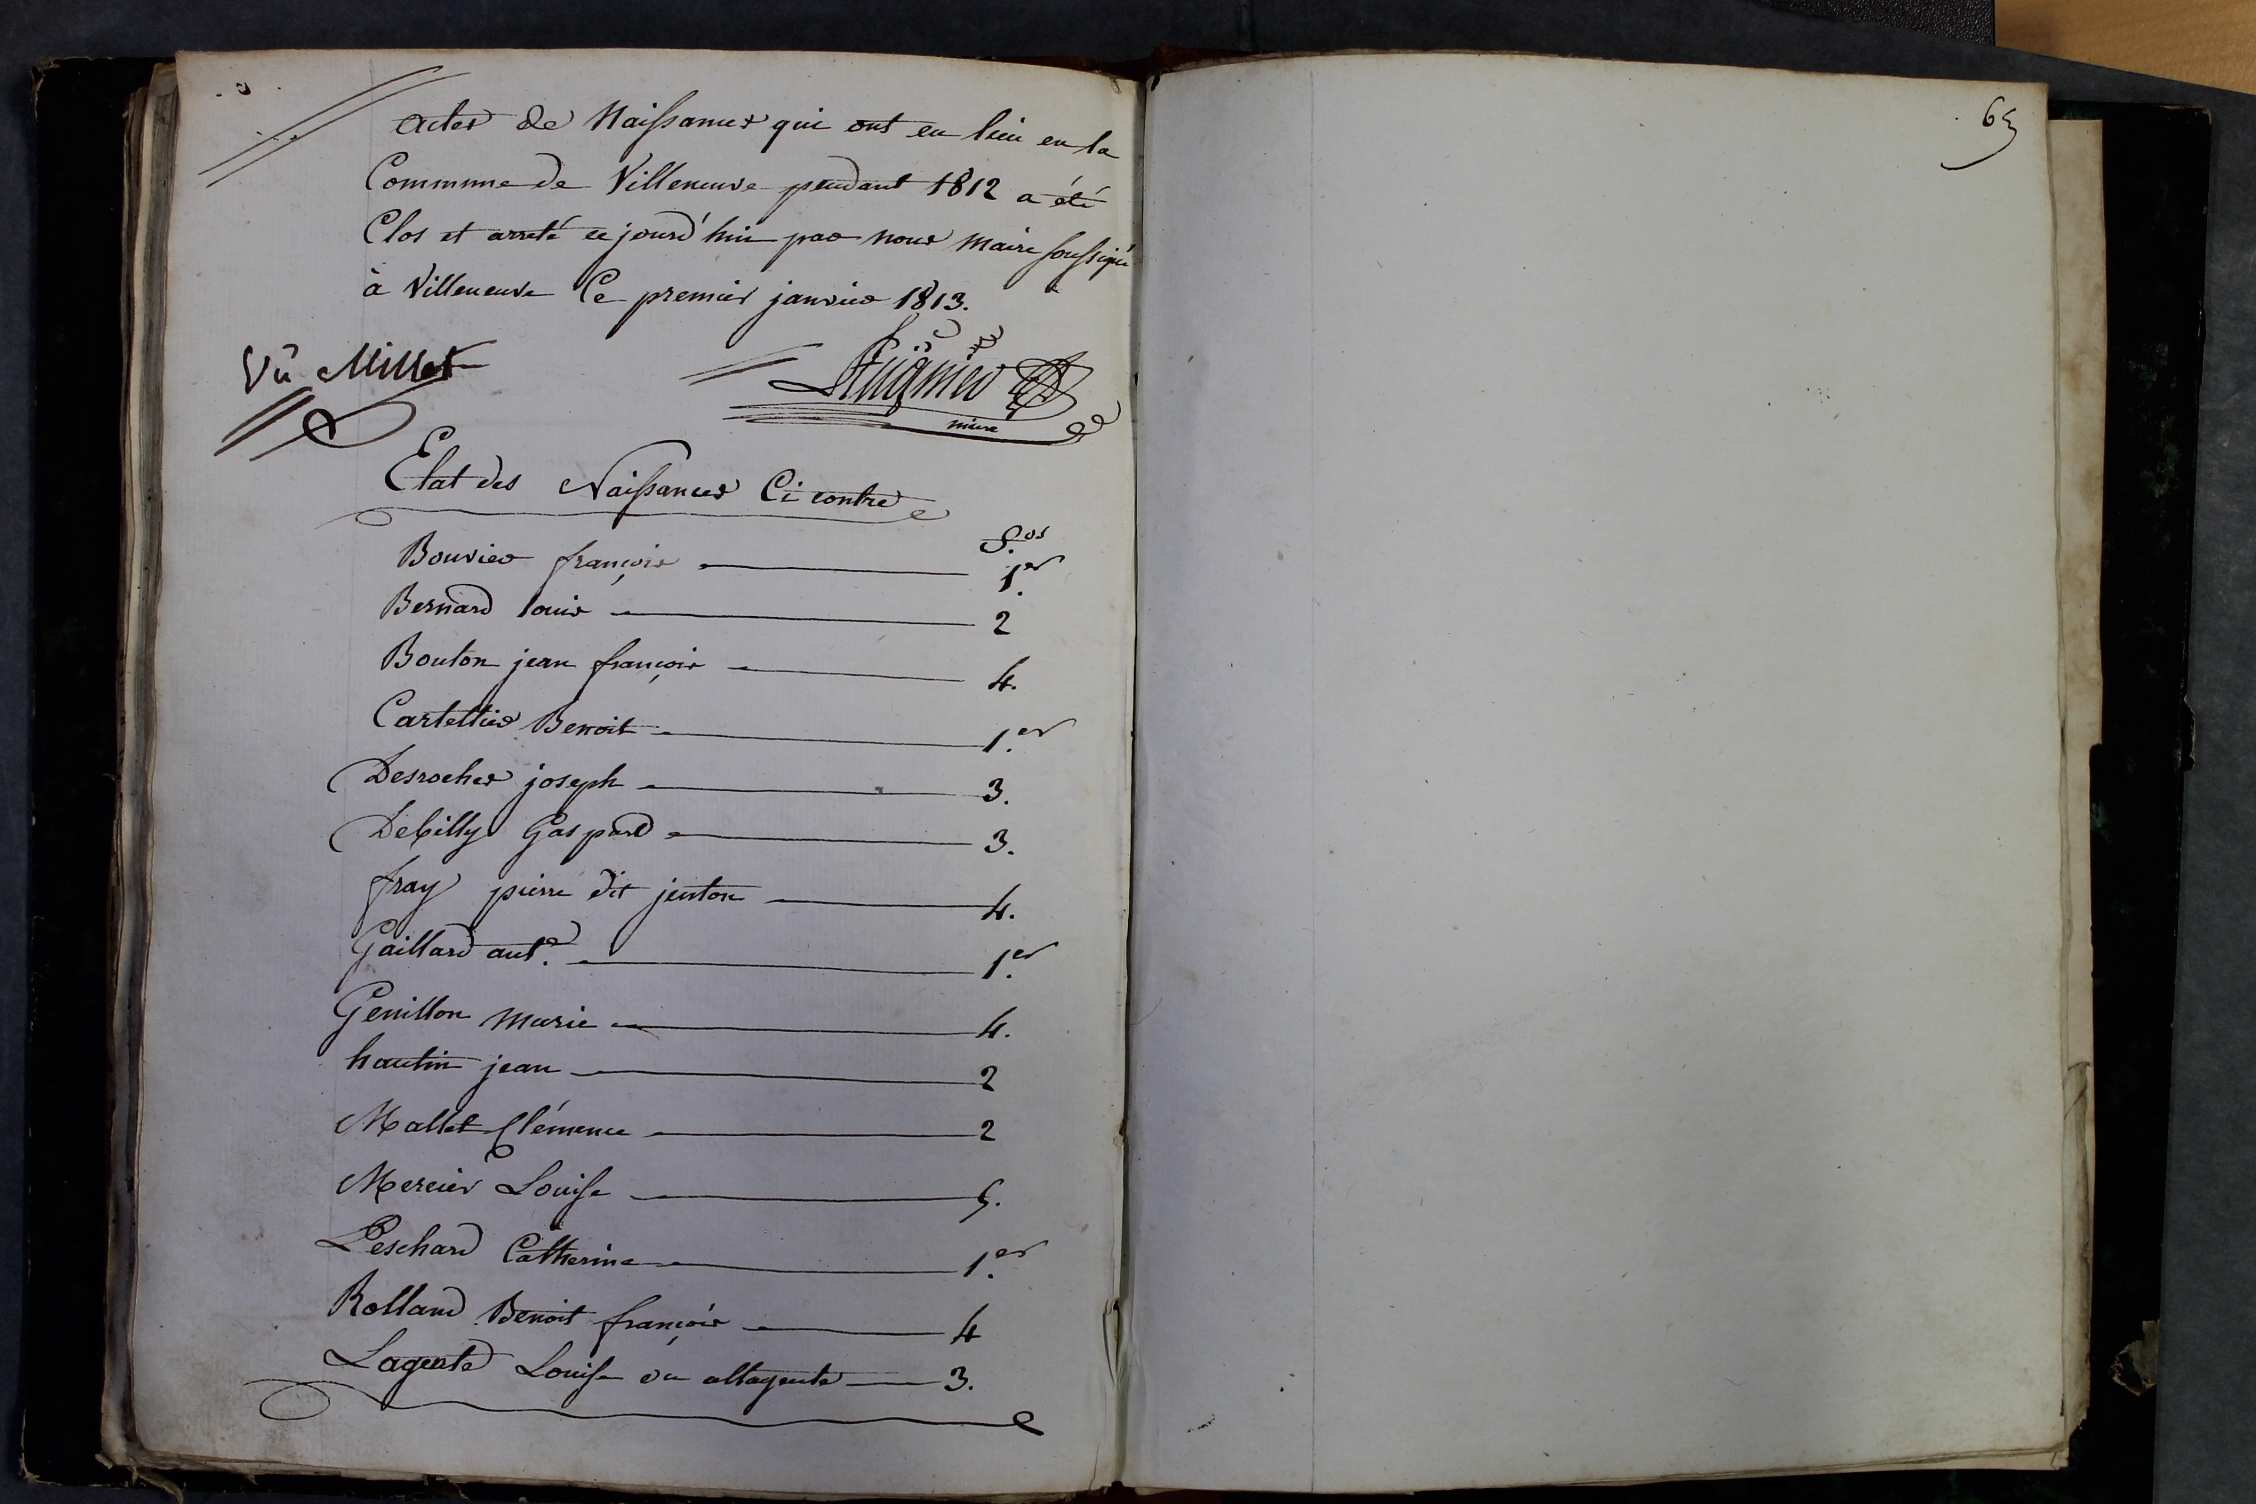 actes de Naissances qui ont eu lieu en la
Commune de Villeneuve pendant 1812 a été
Clos et arreté cejourd'hui par nous maire soussigné
à Villeneuve Ce premier janvier 1813.
Vû Millet
maire
Etat des Naissances Ci contre
f.os
Bouvier françois 1.er
Bernard louis 2
Bouton jean françois 4.
Cartellier Benoit 1.er
Desroches joseph 3.
Debilly Gaspard 3.
fray pierre dit jenton 4.
Gaillard ant.e 1.er
Genillon marie 4.
hautin jean 2
Mallet Clémence 2
Mercier Louise 5.
Peschard Catherine 1.er
Rolland Benoit françois 4
Lagente Louise ou altagente 3.
65